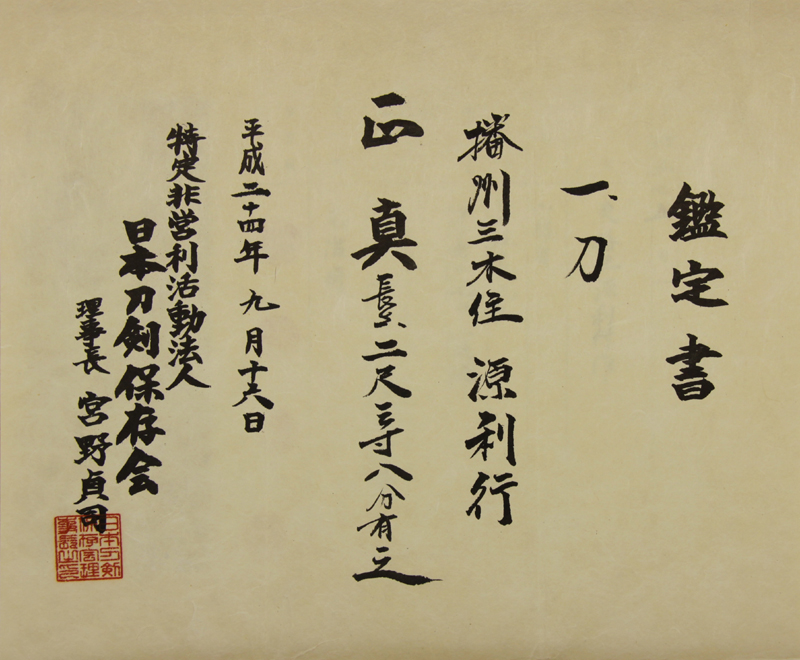 鑑定書
一、刀
播州三木住 源利行
正真 長サ二尺三寸八分有之
平成二十四年九月十六日
特定非営利活動法人
日本刀剣保存会
理事長 宮野貞司